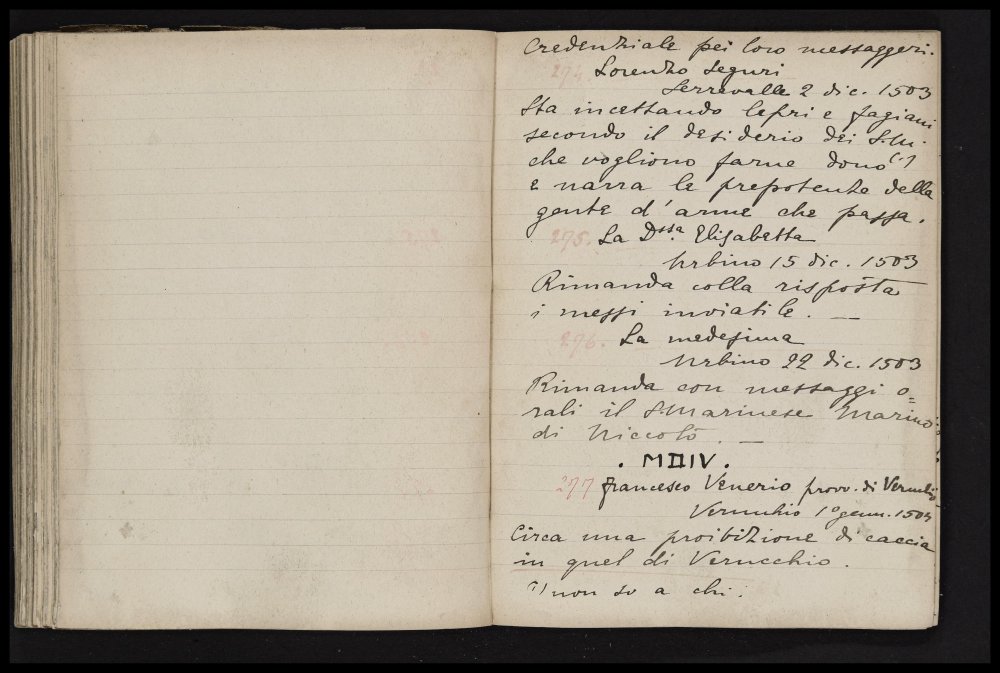 Credenziale pei loro messaggeri.
274 Lorenzo Seguri
Serravalle 2 dic. 1503
Sta incettando lepri e fagiani
secondo il desiderio dei S.M.
che vogliono farne dono (1)
e narra le prepotenze della
gente d'arme che passa.
275. La D.ssa Elisabetta
Urbino 15 dic. 1503
Rimanda colla risposta
i messi inviatile. —
276. La medesima
Urbino 22 dic. 1503
Rimanda con messaggi o=
rali il S.Marinese Marino
di Niccolò. —
. MDIV .
277 Francesco Venerio provv. di Verucchio
Verucchio 1º genn. 1504
Circa una proibizione di caccia
in quel di Verucchio.
1) non so a chi.